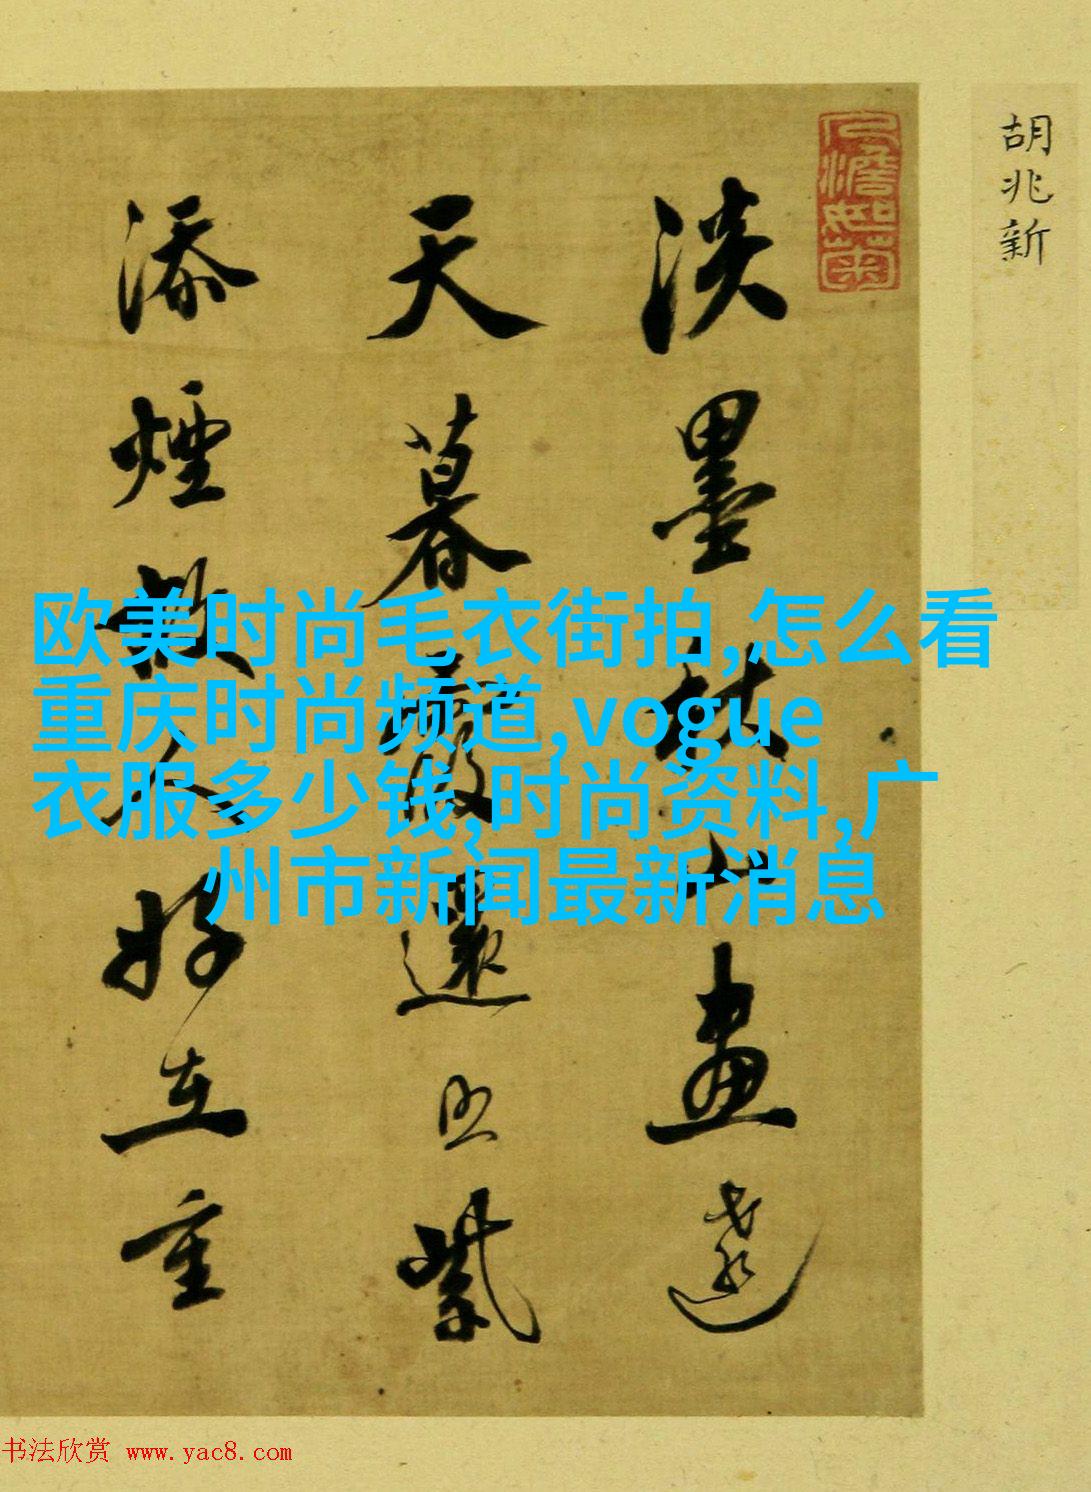 胡兆新
人澹如菊
淡墨秋山畫遠
天暮霞還照紫
添煙故人好在重
欧美时尚毛衣街拍,怎么看
重庆时尚频道,vogue
衣服多少钱,时尚资料,广
州市新闻最新消息
书法欣赏 www.yac8.com